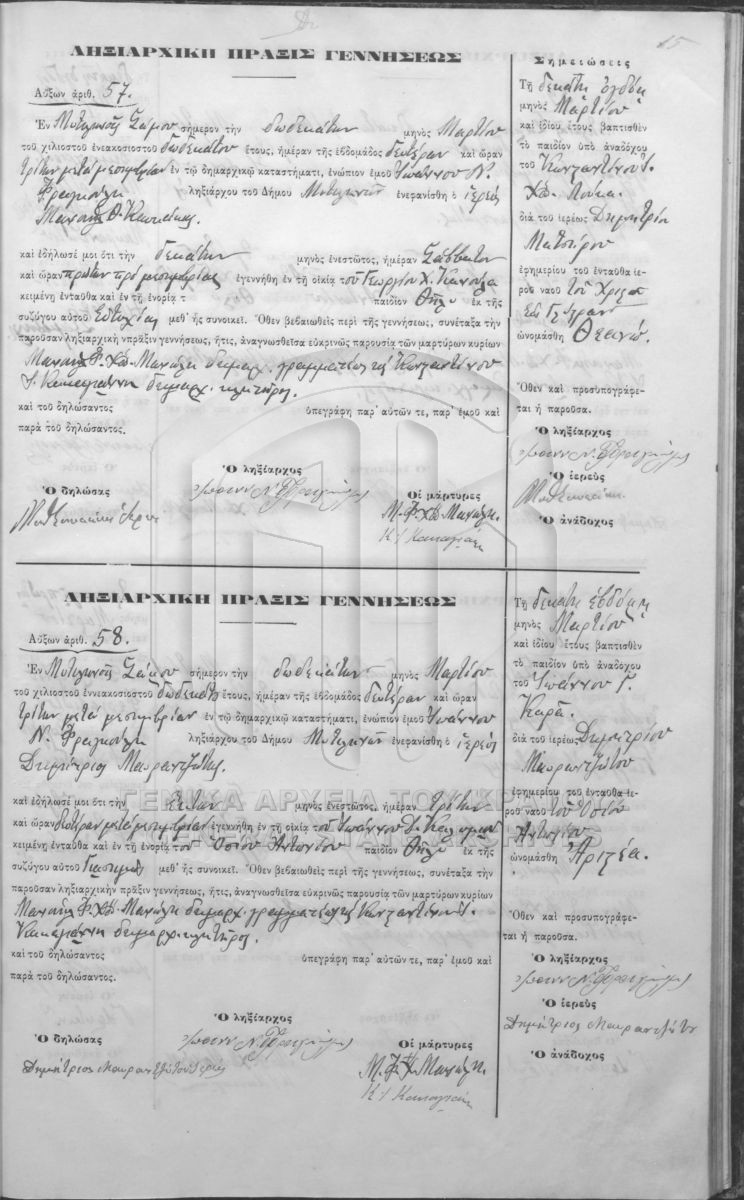 15
ΛΗΞΙΑΡΧΙΚΗ ΠΡΑΞΙΣ ΓΕΝΝΗΣΕΩΣ
Αὔξων ἀριθ. 57.
Ἐν Μυτιληνοῖς Σάμου σήμερον τὴν δωδεκάτην μηνὸς Μαρτίου
τοῦ χιλιοστοῦ ἐνεακοσιοστοῦ δωδεκάτου ἔτους, ἡμέραν τῆς ἑβδομάδος Δευτέραν καὶ ὥραν
τρίτην μετὰ μεσημβρίαν ἐν τῷ δημαρχικῷ καταστήματι, ἐνώπιον ἐμοῦ Ἰωάννου Ν.
Φραγκούλη ληξιάρχου τοῦ Δήμου Μυτιληνῶν ἐνεφανίσθη ὁ ἱερεὺς
Μανουὴλ Θ.
καὶ ἐδήλωσέ μοι ὅτι τὴν δεκάτην μηνὸς ἐνεστῶτος, ἡμέραν Σάββατον
καὶ ὥραν πρώτην πρὸ μεσημβρίας ἐγεννήθη ἐν τῇ οἰκίᾳ τοῦ Γεωργίου Χ.
κειμένῃ ἐνταῦθα καὶ ἐν τῇ ἐνορίᾳ τ παιδίον θῆλυ ἐκ τῆς
συζύγου αὐτοῦ Εὐτυχίας μεθ᾽ ἧς συνοικεῖ. Ὅθεν βεβαιωθεὶς περὶ τῆς γεννήσεως, συνέταξα τὴν
παροῦσαν ληξιαρχικὴν πρᾶξιν γεννήσεως, ἥτις, ἀναγνωσθεῖσα εὐκρινῶς παρουσίᾳ τῶν μαρτύρων κυρίων
Μανουὴλ Φ. Χ῾῾ Μανώλη δημαρχ. γραμματέως καὶ Κωνσταντίνου
Ι. Κακαγιάννη δημαρχ. κλητῆρος.
καὶ τοῦ δηλώσαντος ὑπεγράφη παρ᾽ αὐτῶν τε, παρ᾽ ἐμοῦ καὶ
παρὰ τοῦ δηλώσαντος.
Ὁ ληξίαρχος
Ὁ δηλώσας
Οἱ μάρτυρες
Μ. Φ. Χ῾῾ Μανώλης.
Σημειώσεις
Τῇ δεκάτῃ ὀγδόῃ
μηνὸς Μαρτίου
καὶ ἰδίου ἔτους βαπτισθὲν
τὸ παιδίον ὑπὸ ἀναδόχου
τοῦ Κωνσταντίνου Ι.
Χ῾῾ Λουκα.
διὰ τοῦ ἱερέως Δημητρίου
ἐφημερίου τοῦ ἐνταῦθα ἱε-
ροῦ ναοῦ τοῦ
ὠνομάσθη Θεανώ.
Ὅθεν καὶ προσυπογράφε-
ται ἡ παροῦσα.
Ὁ ληξίαρχος
Ὁ ἱερεὺς
Ὁ ἀνάδοχος
ΛΗΞΙΑΡΧΙΚΗ ΠΡΑΞΙΣ ΓΕΝΝΗΣΕΩΣ
Αὔξων ἀριθ. 58.
Ἐν Μυτιληνοῖς Σάμου σήμερον τὴν δωδεκάτην μηνὸς Μαρτίου
τοῦ χιλιοστοῦ ἐννεακοσιοστοῦ δωδεκάτου ἔτους, ἡμέραν τῆς ἑβδομάδος Δευτέραν καὶ ὥραν
τρίτην μετὰ μεσημβρίαν ἐν τῷ δημαρχικῷ καταστήματι, ἐνώπιον ἐμοῦ Ἰωάννου
Ν. Φραγκούλη ληξιάρχου τοῦ Δήμου Μυτιληνῶν ἐνεφανίσθη ὁ ἱερεὺς
Δημήτριος Μαυρατζώτης.
καὶ ἐδήλωσέ μοι ὅτι τὴν ἕκτην μηνὸς ἐνεστῶτος, ἡμέραν τρίτην
καὶ ὥραν δευτέραν μετὰ μεσημβρίαν ἐγεννήθη ἐν τῇ οἰκίᾳ τοῦ Ἰωάννου
κειμένῃ ἐνταῦθα καὶ ἐν τῇ ἐνορίᾳ τοῦ Ὁσίου Ἀντωνίου παιδίον θῆλυ ἐκ τῆς
συζύγου αὐτοῦ μεθ᾽ ἧς συνοικεῖ. Ὅθεν βεβαιωθεὶς περὶ τῆς γεννήσεως, συνέταξα τὴν
παροῦσαν ληξιαρχικὴν πρᾶξιν γεννήσεως, ἥτις, ἀναγνωσθεῖσα εὐκρινῶς παρουσίᾳ τῶν μαρτύρων κυρίων
Μανουὴλ Φ. Χ῾῾ Μανώλη δημαρχ. γραμματέως καὶ Κωνσταντίνου Ι.
Κακαγιάννη δημαρχ. κλητῆρος.
καὶ τοῦ δηλώσαντος ὑπεγράφη παρ᾽ αὐτῶν τε, παρ᾽ ἐμοῦ καὶ
παρὰ τοῦ δηλώσαντος.
Ὁ ληξίαρχος
Ὁ δηλώσας
Οἱ μάρτυρες
Μ. Φ. Χ῾῾ Μανώλης.
Τῇ δεκάτῃ ἑβδόμῃ
μηνὸς Μαρτίου
καὶ ἰδίου ἔτους βαπτισθὲν
τὸ παιδίον ὑπὸ ἀναδόχου
τοῦ Ἰωάννου Γ.
Καρᾶ.
διὰ τοῦ ἱερέως Δημητρίου
Μαυρατζώτου
ἐφημερίου τοῦ ἐνταῦθα ἱε-
ροῦ ναοῦ τοῦ Ὁσίου
Ἀντωνίου
ὠνομάσθη Ἀριστέα.
Ὅθεν καὶ προσυπογράφε-
ται ἡ παροῦσα.
Ὁ ληξίαρχος
Ὁ ἱερεὺς
Ὁ ἀνάδοχος
ΓΕΝΙΚΑ ΑΡΧΕΙΑ ΤΟΥ ΚΡΑΤΟΥΣ